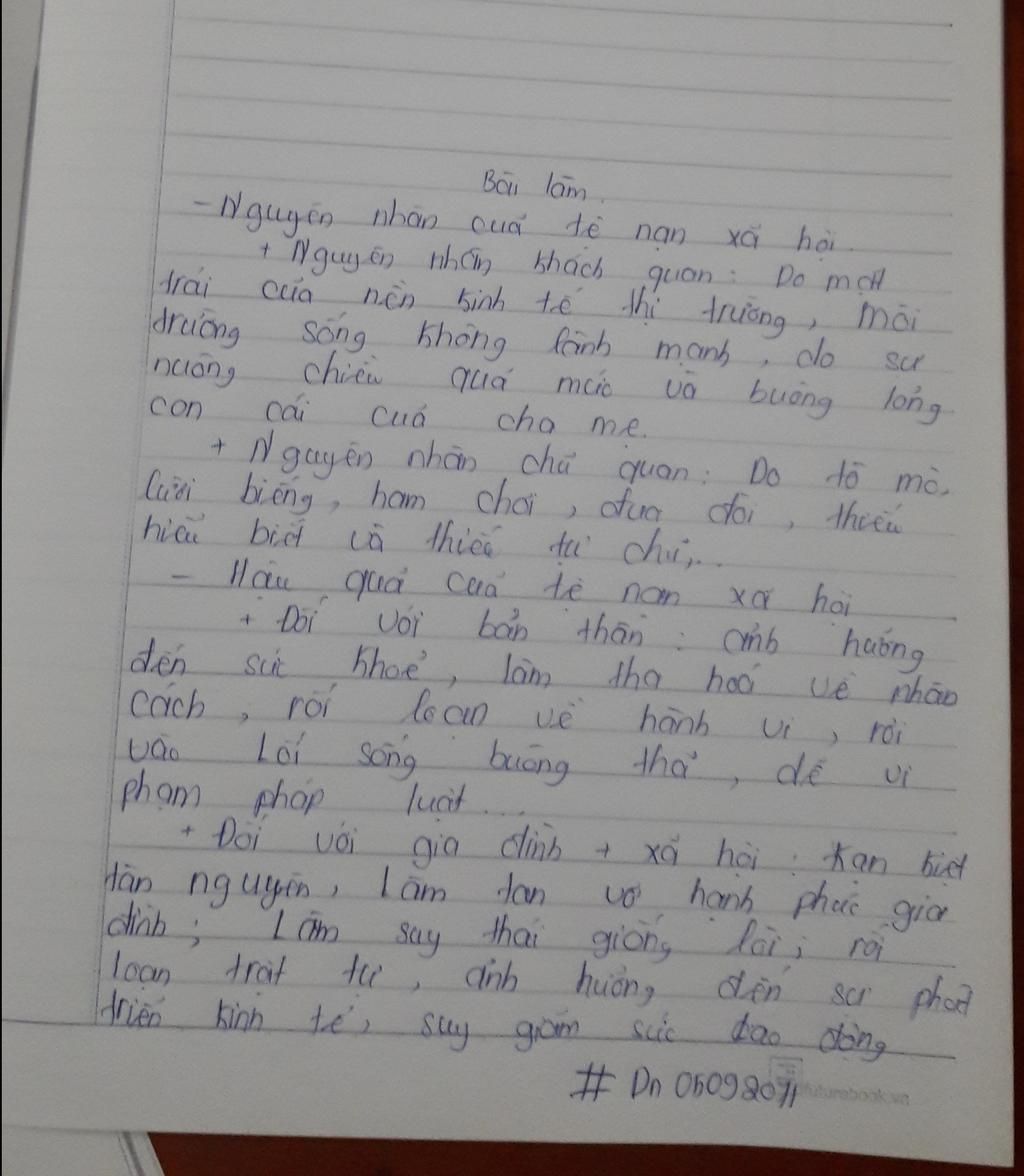 Bài làm.
- Nguyên nhân của tệ nạn xã hội.
+ Nguyên nhân khách quan: Do mặt
trái của nền kinh tế thị trường, môi
trường sống không lành mạnh, do sự
nuông chiều quá mức và buông lỏng
con cái của cha mẹ.
+ Nguyên nhân chủ quan: Do tò mò,
lười biếng, ham chơi, đua đòi, thiếu
hiểu biết và thiếu tự chủ,..
- Hậu quả của tệ nạn xã hội
+ Đối với bản thân: ảnh hưởng
đến sức khoẻ, làm tha hoá về nhân
cách, rối loạn về hành vi, rơi
vào lối sống buông thả, dễ vi
phạm pháp luật...
+ Đối với gia đình + xã hội: kạn kiệt
tài nguyên, Làm tan vỡ hạnh phúc gia
đình; Làm suy thoái giống lòi; rối
loạn trật tự, ảnh hưởng đến sự phát
triển kinh tế, suy giảm sức lao động
# Dn 05092071
futurebook.vn